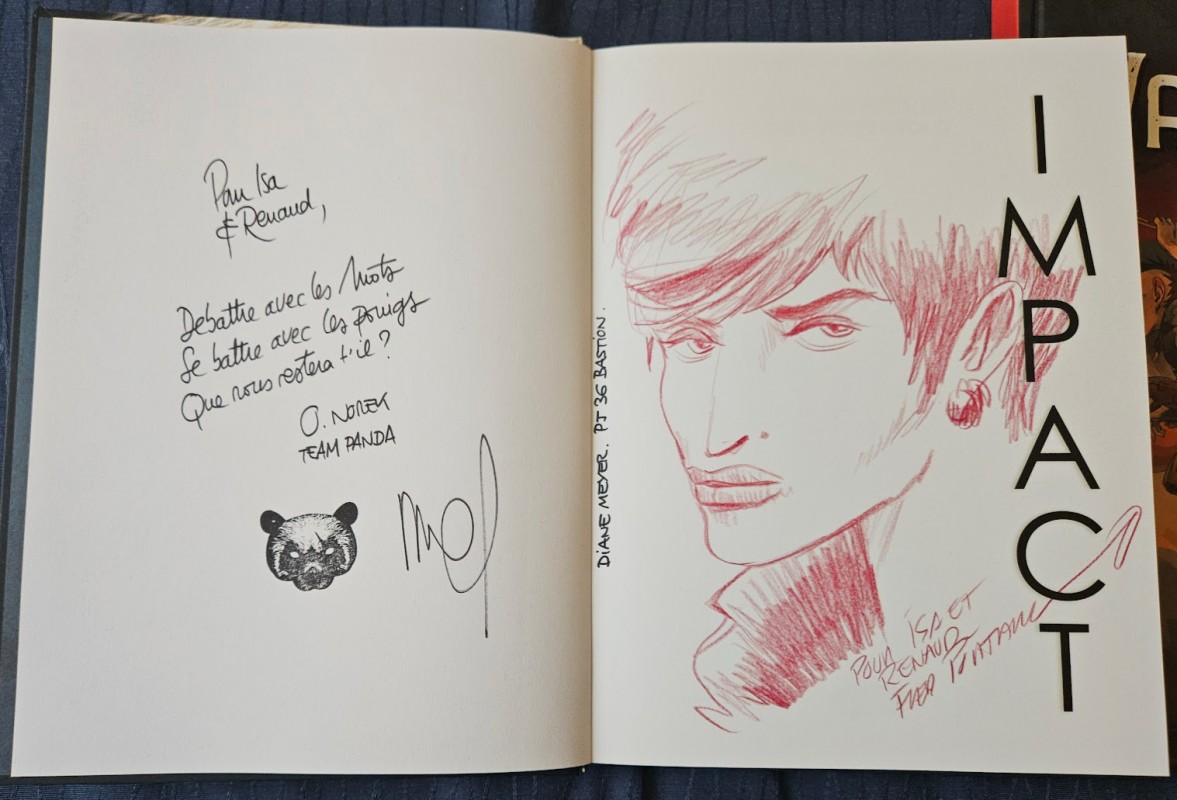 Pour Isa
& Renaud,
Débattre avec les Mots
Se battre avec les poings
Que nous restera t'il ?
O. NOREK
TEAM PANDA
DIANE MEYER. PJ 36 BASTION.
IMPACT
POUR ISA ET
RENAUD
FRED PONTAROLO